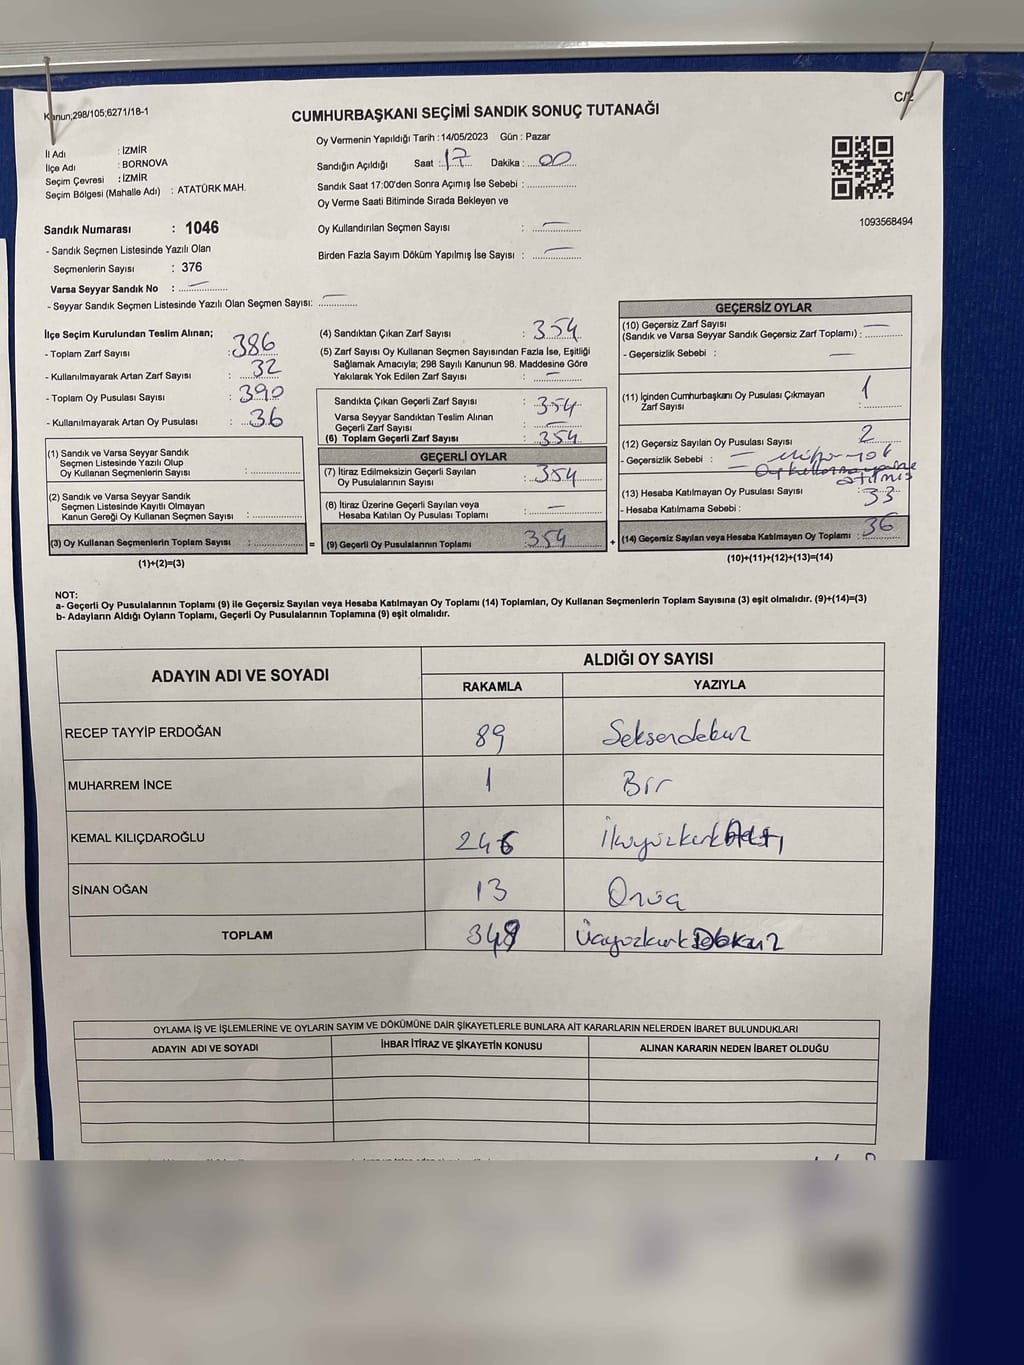 Kanun;298/105;6271/18-1
C/2
CUMHURBAŞKANI SEÇİMİ SANDIK SONUÇ TUTANAĞI
Oy Vermenin Yapıldığı Tarih : 14/05/2023 Gün : Pazar
İl Adı : İZMİR
İlçe Adı : BORNOVA
Seçim Çevresi : İZMİR
Seçim Bölgesi (Mahalle Adı) : ATATÜRK MAH.
Sandığın Açıldığı Saat : 17 Dakika : 00
Sandık Saat 17:00'den Sonra Açımış İse Sebebi :
Oy Verme Saati Bitiminde Sırada Bekleyen ve
Oy Kullandırılan Seçmen Sayısı : —
Birden Fazla Sayım Döküm Yapılmış İse Sayısı : —
1093568494
Sandık Numarası : 1046
- Sandık Seçmen Listesinde Yazılı Olan
Seçmenlerin Sayısı : 376
Varsa Seyyar Sandık No : —
- Seyyar Sandık Seçmen Listesinde Yazılı Olan Seçmen Sayısı: —
İlçe Seçim Kurulundan Teslim Alınan;
- Toplam Zarf Sayısı : 386
- Kullanılmayarak Artan Zarf Sayısı : 32
- Toplam Oy Pusulası Sayısı : 390
- Kullanılmayarak Artan Oy Pusulası : 36
(1) Sandık ve Varsa Seyyar Sandık
Seçmen Listesinde Yazılı Olup
Oy Kullanan Seçmenlerin Sayısı :
(2) Sandık ve Varsa Seyyar Sandık
Seçmen Listesinde Kayıtlı Olmayan
Kanun Gereği Oy Kullanan Seçmen Sayısı :
(3) Oy Kullanan Seçmenlerin Toplam Sayısı : =
(1)+(2)=(3)
(4) Sandıktan Çıkan Zarf Sayısı : 354
(5) Zarf Sayısı Oy Kullanan Seçmen Sayısından Fazla İse, Eşitliği
Sağlamak Amacıyla; 298 Sayılı Kanunun 98. Maddesine Göre
Yakılarak Yok Edilen Zarf Sayısı : —
Sandıkta Çıkan Geçerli Zarf Sayısı : 354
Varsa Seyyar Sandıktan Teslim Alınan
Geçerli Zarf Sayısı : —
(6) Toplam Geçerli Zarf Sayısı : 354
GEÇERLİ OYLAR
(7) İtiraz Edilmeksizin Geçerli Sayılan
Oy Pusulalarının Sayısı : 354
(8) İtiraz Üzerine Geçerli Sayılan veya
Hesaba Katılan Oy Pusulası Toplamı : —
(9) Geçerli Oy Pusulalarının Toplamı : 354 +
GEÇERSİZ OYLAR
(10) Geçersiz Zarf Sayısı —
(Sandık ve Varsa Seyyar Sandık Geçersiz Zarf Toplamı) :
- Geçersizlik Sebebi : —
(11) İçinden Cumhurbaşkanı Oy Pusulası Çıkmayan 1
Zarf Sayısı :
(12) Geçersiz Sayılan Oy Pusulası Sayısı : 2
- Geçersizlik Sebebi : Mühür yok
atılmış
(13) Hesaba Katılmayan Oy Pusulası Sayısı : 33
- Hesaba Katılmama Sebebi :
(14) Geçersiz Sayılan veya Hesaba Katılmayan Oy Toplamı : 36
(10)+(11)+(12)+(13)=(14)
NOT:
a- Geçerli Oy Pusulalarının Toplamı (9) ile Geçersiz Sayılan veya Hesaba Katılmayan Oy Toplamı (14) Toplamları, Oy Kullanan Seçmenlerin Toplam Sayısına (3) eşit olmalıdır. (9)+(14)=(3)
b- Adayların Aldığı Oyların Toplamı, Geçerli Oy Pusulalarının Toplamına (9) eşit olmalıdır.
ADAYIN ADI VE SOYADI
ALDIĞI OY SAYISI
RAKAMLA YAZIYLA
RECEP TAYYİP ERDOĞAN 89 Seksendokuz
MUHARREM İNCE 1 Bir
KEMAL KILIÇDAROĞLU 246 İkiyüzkırkAltı
SİNAN OĞAN 13 Onüç
TOPLAM 349 ÜçyüzkırkDokuz
OYLAMA İŞ VE İŞLEMLERİNE VE OYLARIN SAYIM VE DÖKÜMÜNE DAİR ŞİKAYETLERLE BUNLARA AİT KARARLARIN NELERDEN İBARET BULUNDUKLARI
ADAYIN ADI VE SOYADI İHBAR İTİRAZ VE ŞİKAYETİN KONUSU ALINAN KARARIN NEDEN İBARET OLDUĞU